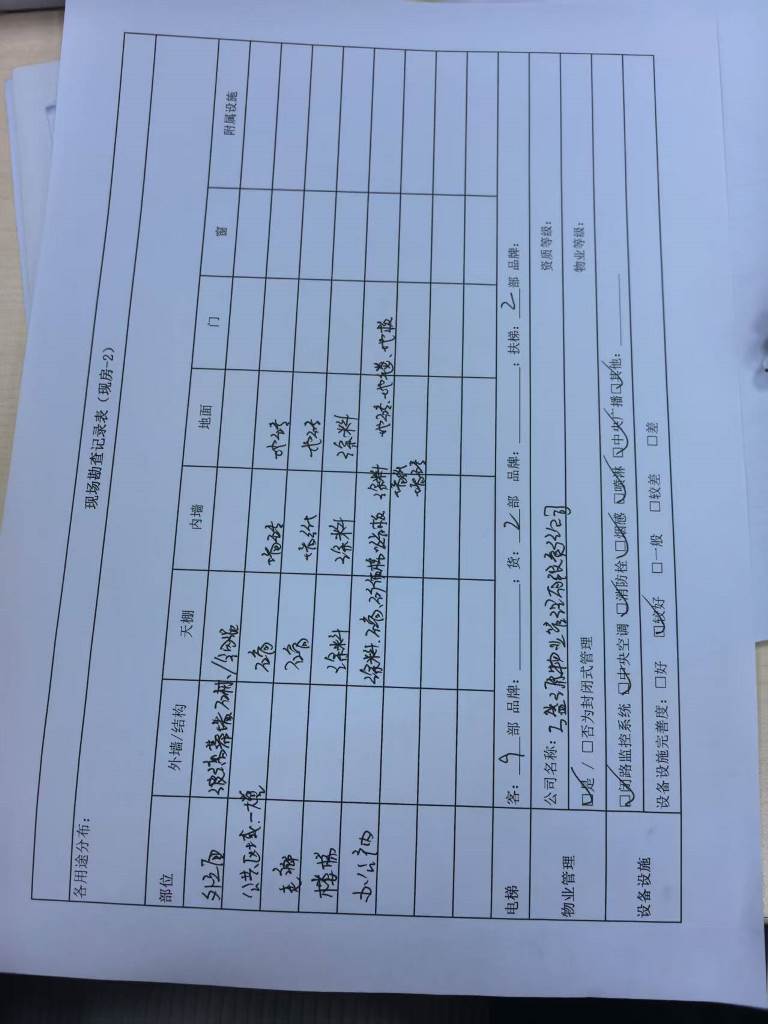 现场勘查记录表（现房-2）
各用途分布：
部位 外墙/结构 天棚 内墙 地面 门 窗 附属设施
外立面 玻璃幕墙、石材、
公共区域-大堂 石膏 墙砖 地砖
走廊 石膏 墙纸 地砖
楼梯 涂料 涂料 涂料
办公室内 涂料、石膏、矿棉板 涂料 墙纸 墙砖 地砖、地毯、地板
电梯 客：9部 品牌： ；货：2部 品牌： ；扶梯：2部 品牌：
物业管理 公司名称： 物业管理有限责任公司 资质等级：
☑是 / □否为封闭式管理 物业等级：
设备设施 ☑闭路监控系统 ☑中央空调 ☑消防栓 ☑烟感 ☑喷淋 ☑中央广播 ☑其他：
设备设施完善度：□好 ☑较好 □一般 □较差 □差